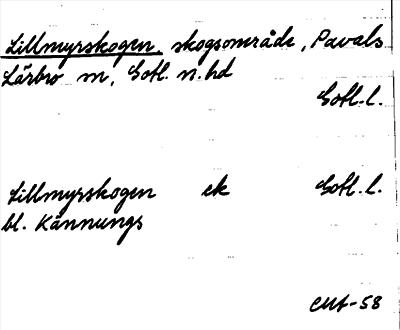 Lillmyrskogen, skogsområde, Pavals
Lärbro sn, Gotl. n. hd
Gotl. l.
Lillmyrskogen ek Gotl. l.
bl. Kännungs